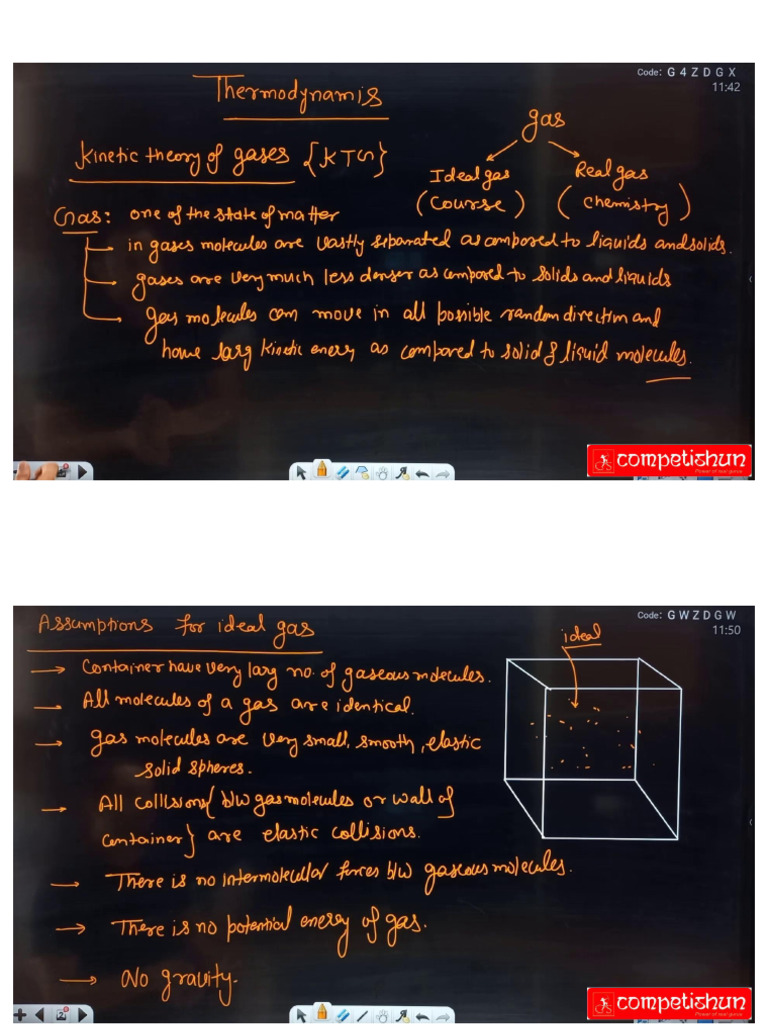 Code: G 4 Z D G X
11:42
Thermodynamis
gas
Kinetic theory of gases {KTG}
Ideal gas
Real gas
(Course)
(Chemistry)
Gas: one of the state of matter
in gases molecules are vastly separated as compared to liquids and solids.
gases are very much less denser as compared to solids and liquids
gas molecules can move in all possible random direction and
have larg kinetic enery as compared to solid & liquid molecules.
competishun
Code: G W Z D G W
11:50
Assumptions for ideal gas
ideal
→ Container have very larg no. of gaseous molecules.
→ All molecules of a gas are identical.
→ gas molecules are very small, smooth, elastic
solid spheres.
→ All collisions{ b/w gas molecules or wall of
container} are elastic collisions.
→ There is no intermolecular forces b/w gaseous molecules.
→ There is no potential energy of gas.
→ No gravity.
competishun